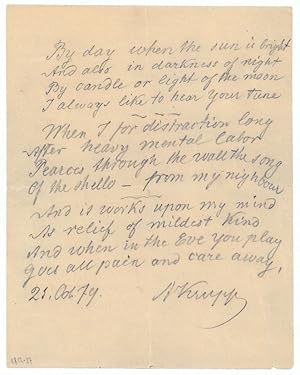 By day when the sun is bright
And also in darkness of night
By candle or light of the moon
I always like to hear your tune
When I for distraction long
After heavy mental labor
Pearces through the wall the song
Of the shello – from my nighbour
And is works upon my mind
As relief of mildest kind
And when in the Eve you play
goes all pain and care away,
21. Oct 79. A Krupp